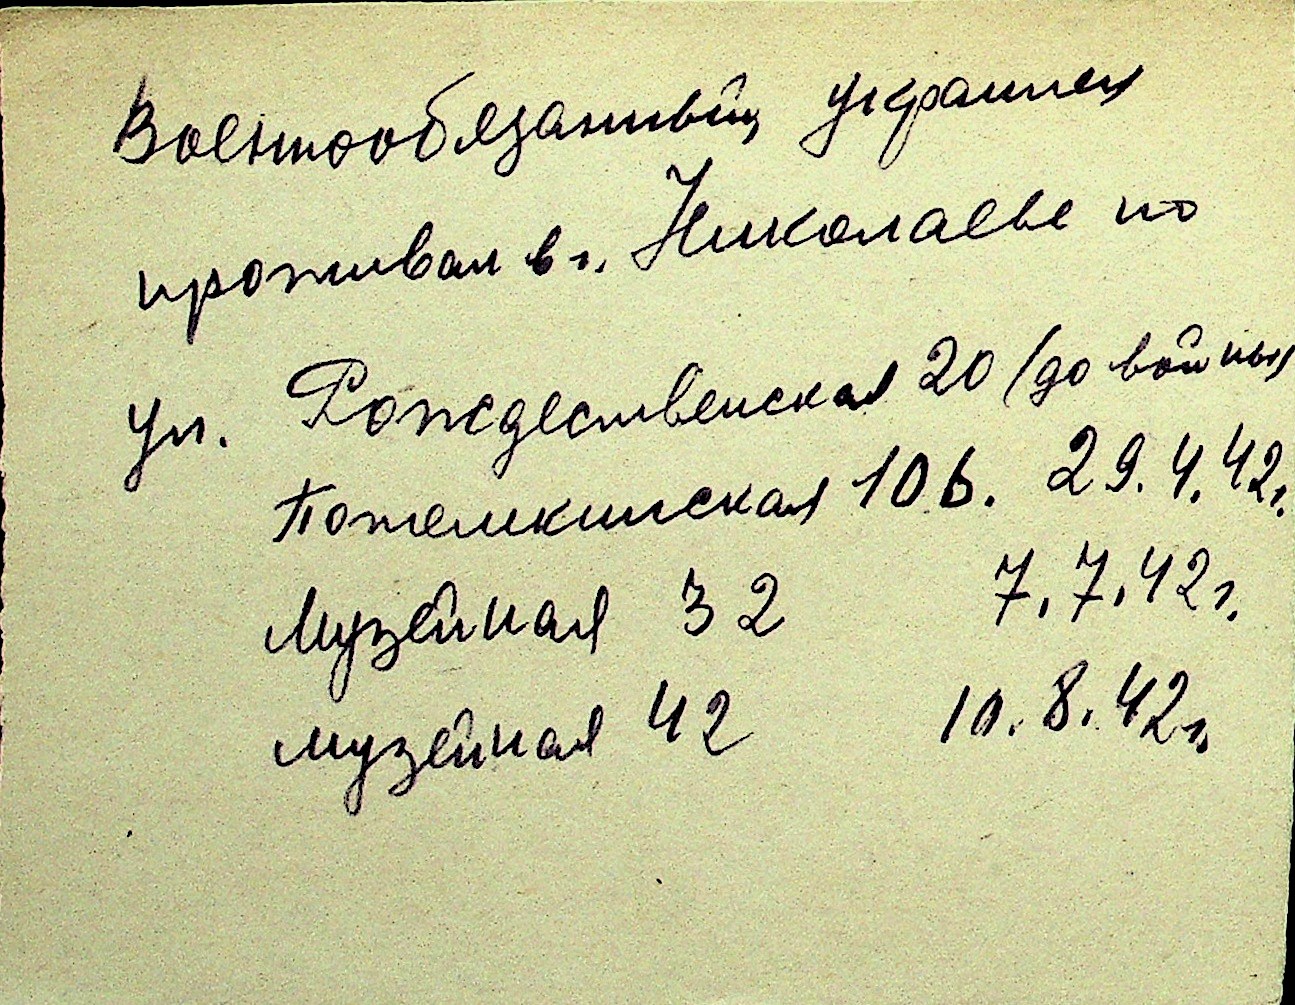 Военнообязанный украинец
проживал в г. Николаеве по
ул. Рождественская 20 (до войны)
Потемкинская 106. 29.4.42г.
Музейная 32 7.7.42г.
Музейная 42 10.8.42г.